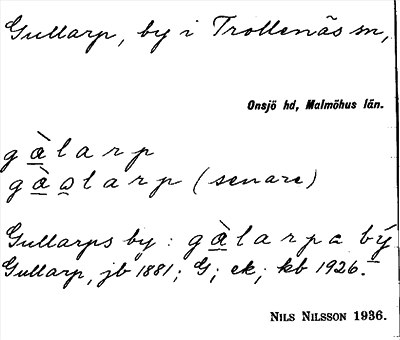 Gullarp, by i Trollenäs sn,
Onsjö hd, Malmöhus län.
gæ̀larp
gæ̀ɷlarp (senare)
Gullarps by: gæ̀larpa bý
Gullarp, jb 1881; G; ek; kb 1926.
NILS NILSSON 1936.